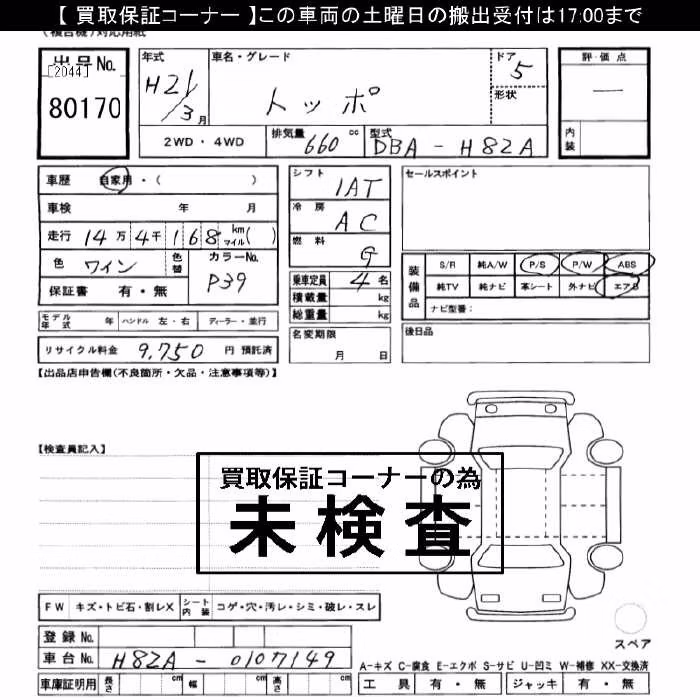 【 買取保証コーナー 】この車両の土曜日の搬出受付は17:00まで
(複合機)対応用紙
出品No.
[2044]
80170
年式
H21/3月
車名・グレード
トッポ
ドア
5
形状
評・価点
—
内装
2WD・4WD
排気量 660 cc
型式 DBA - H82A
車歴 自家用・( )
車検 年 月
走行 14万 4千 1 6 8 km マイル( )
色 ワイン
色替
カラーNo. P39
保証書 有・無
シフト IAT
冷房 AC
燃料 G
乗車定員 4 名
積載量 kg
総重量 kg
セールスポイント
装備品
S/R 純A/W P/S P/W ABS
純TV 純ナビ 革シート 外ナビ エアB
ナビ型番:
モデル年式 年 ハンドル 左・右 ディーラー・並行
名変期限
月 日
後日品
リサイクル料金 9,750 円 預託済
【出品店申告欄(不良箇所・欠品・注意事項等)】
【検査員記入】
買取保証コーナーの為
未検査
FW キズ・トビ石・割レX シート内装 コゲ・穴・汚レ・シミ・破レ・スレ
スペア
登録 No.
車台 No. H82A - 0107149
A-キズ C-腐食 E-エクボ S-サビ U-凹ミ W-補修 XX-交換済
車庫証明用 長さ cm 幅 cm 高さ cm
工具 有・無 ジャッキ 有・無